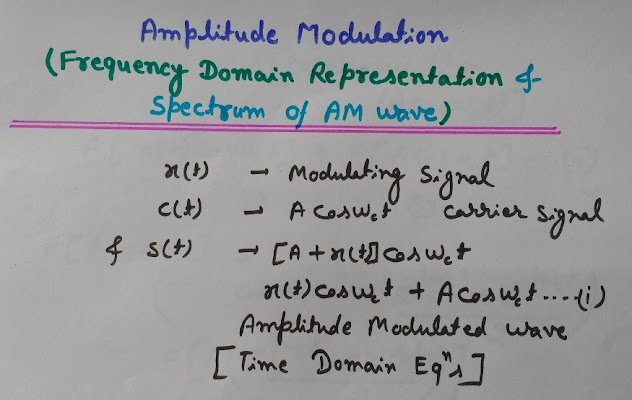 Amplitude Modulation
(Frequency Domain Representation &
Spectrum of AM wave)
x(t) → Modulating Signal
c(t) → A cosωct carrier signal
& s(t) → [A + x(t)] cosωct
x(t) cosωct + A cosωct ....(i)
Amplitude Modulated wave
[Time Domain Eqⁿs]